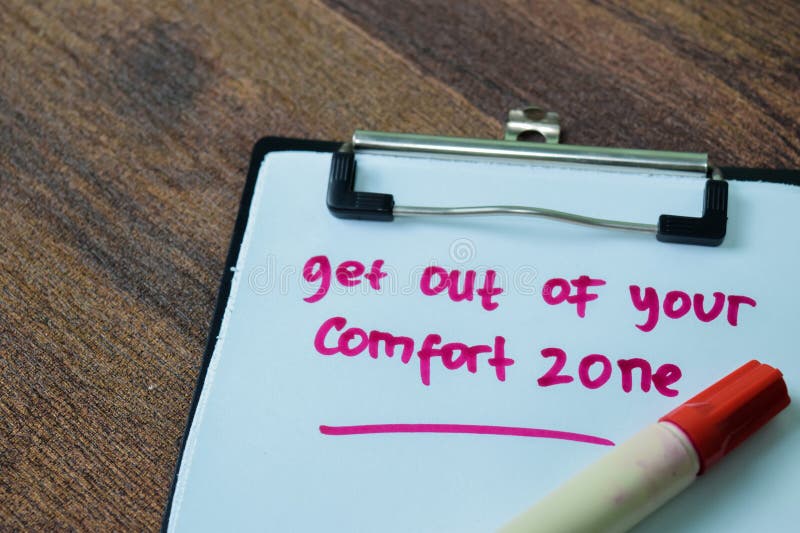 get out of your
Comfort zone